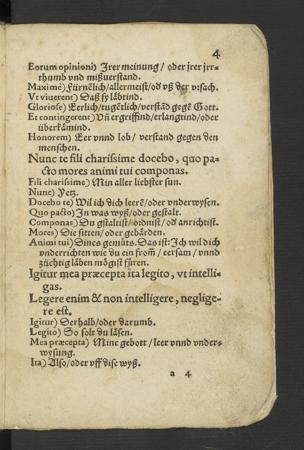 4
Eorum opinioni) Irer meinung / oder jrer jrr-
thumb vnd mißuerstand.
Maximè) Fürnêlich/allermeist/od vß der vrsach.
Vt viuerent) Daß sy läbtind.
Gloriose) Eerlich/tugêtlich/verstād gegē Gott.
Et contingerent) Vñ ergriffind/erlangtind/oder
überkämind.
Honorem) Eer vnnd lob / verstand gegen den
menschen.
Nunc te fili charissime docebo, quo pa-
cto mores animi tui componas.
Fili charissime) Min aller liebster sun.
Nunc) Yetz.
Docebo te) Wil ich dich leerē/oder vnderwysen.
Quo pacto) In was wyß/oder gestalt.
Componas) Du gstaltist/ordnist/od anrichtist.
Mores) Die sitten/oder gebärden.
Animi tui) Dines gemüts. Das ist: Ich wil dich
vnderrichten wie du ein from̄ / eersam / vnnd
züchtig läben mögist füren.
Igitur mea præcepta ita legito, vt intelli-
gas.
Legere enim & non intelligere, neglige-
re est.
Igitur) Derhalb/oder darumb.
Legito) So solt du läsen.
Mea præcepta) Mine gebott / leer vnnd vnder-
wysung.
Ita) Also/oder vff dise wyß.
a 4